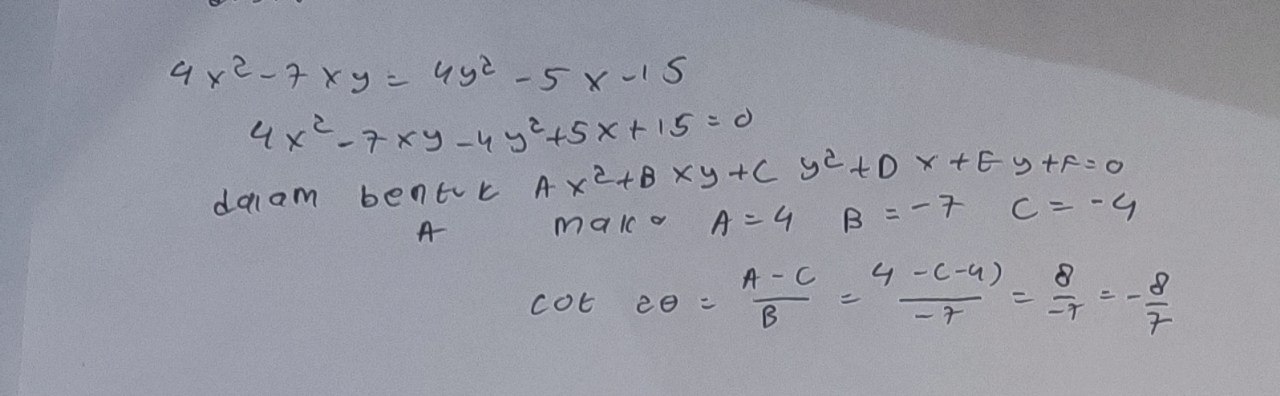 4x² - 7xy = 4y² - 5x - 15
4x² - 7xy - 4y² + 5x + 15 = 0
dalam bentuk Ax² + Bxy + Cy² + Dx + Ey + F = 0
A maka A = 4 B = -7 C = -4
cot 2θ = A - C / B = 4 - (-4) / -7 = 8 / -7 = - 8 / 7